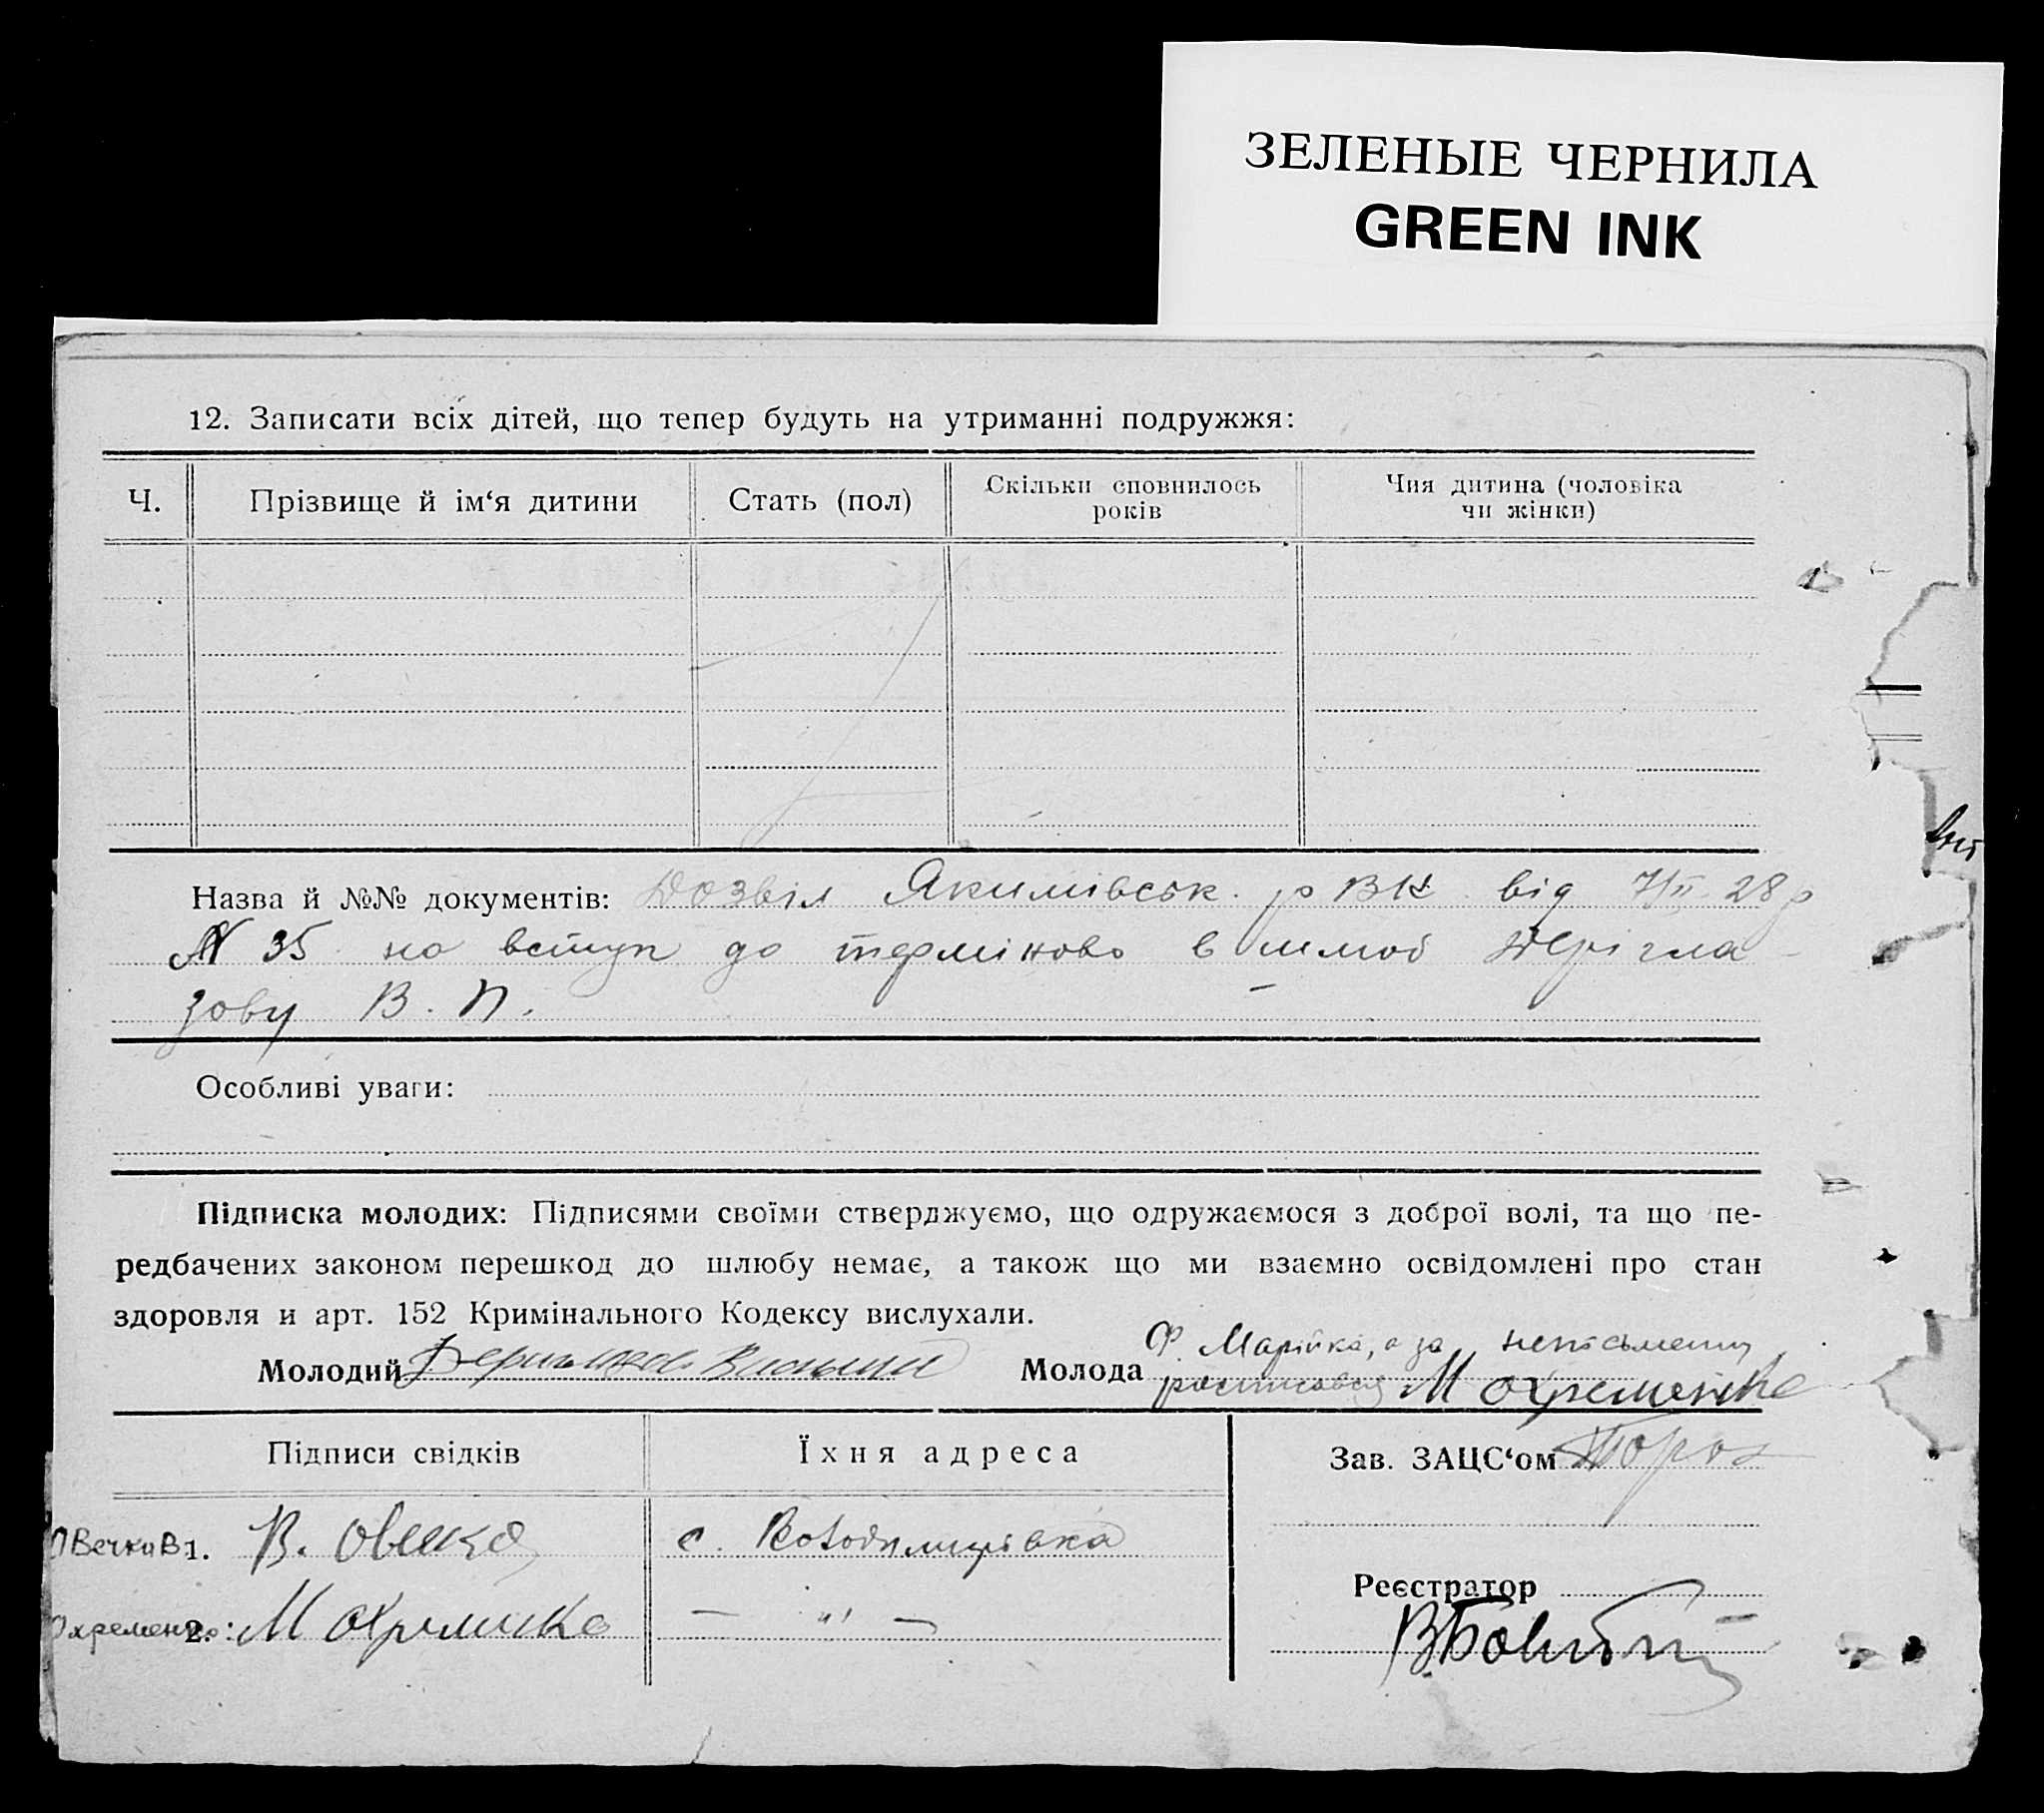 ЗЕЛЕНЫЕ ЧЕРНИЛА
GREEN INK
12. Записати всіх дітей, що тепер будуть на утриманні подружжя:
Ч. Прізвище й ім‘я дитини Стать (пол) Скільки сповнилось років Чия дитина (чоловіка чи жінки)
Назва й №№ документів: Дозвіл Якимівськ. рВК від 7/II 28р
N 35 на вступ до терміново в шлюб Дерігла-
зову В. П.
Особливі уваги:
Підписка молодих: Підписями своїми стверджуємо, що одружаємося з доброї волі, та що пе-
редбачених законом перешкод до шлюбу немає, а також що ми взаємно освідомлені про стан
здоровля и арт. 152 Кримінального Кодексу вислухали.
Ф. Марійка, а за неписьменну
Молодий Василий Молода расписався М Охременко
Підписи свідків Їхня адреса Зав. ЗАЦС‘ом
Овечка В 1. В. Овечка с. Володимирівка
Реєстратор
Охременко: 2. М Охременко — " —